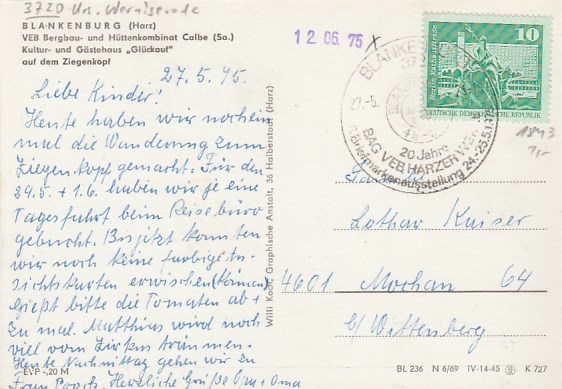 3720 Krs. Wernigerode
BLANKENBURG (Harz)
VEB Bergbau- und Hüttenkombinat Calbe (Sa.)
Kultur- und Gästehaus „Glückauf"
auf dem Ziegenkopf
12 06. 75
27.5.75.
Liebe Kinder!
Heute haben wir noch ein
mal die Wanderung zum
Ziegenkopf gemacht. Für den
29.5. + 1.6. haben wir je eine
Tagesfahrt beim Reisebüro
gebucht. Bis jetzt konnten
wir noch keine farbige An-
sichtskarten erwischen (können)
Gießt bitte die Tomaten ab +
zu mal. Matthias wird noch
viel vom Zirkus träumen.
Heute Nachmittag gehen wir zu
Frau Herzliche Grüße Opa + Oma
EVP -,20 M
Willi Koch, Graphische Anstalt, 36 Halberstadt (Harz)
BLANKENBURG
372
27.-5.
20 Jahre
BAG VEB HARZER WERKE
Briefmarkenausstellung 24.-25.5.1975
10
DEUTSCHE DEMOKRATISCHE REPUBLIK
1843
Familie
Lothar Kaiser
4601 Mochau 64
b/ Wittenberg
BL 236 N 6/69 IV-14-45 K 727